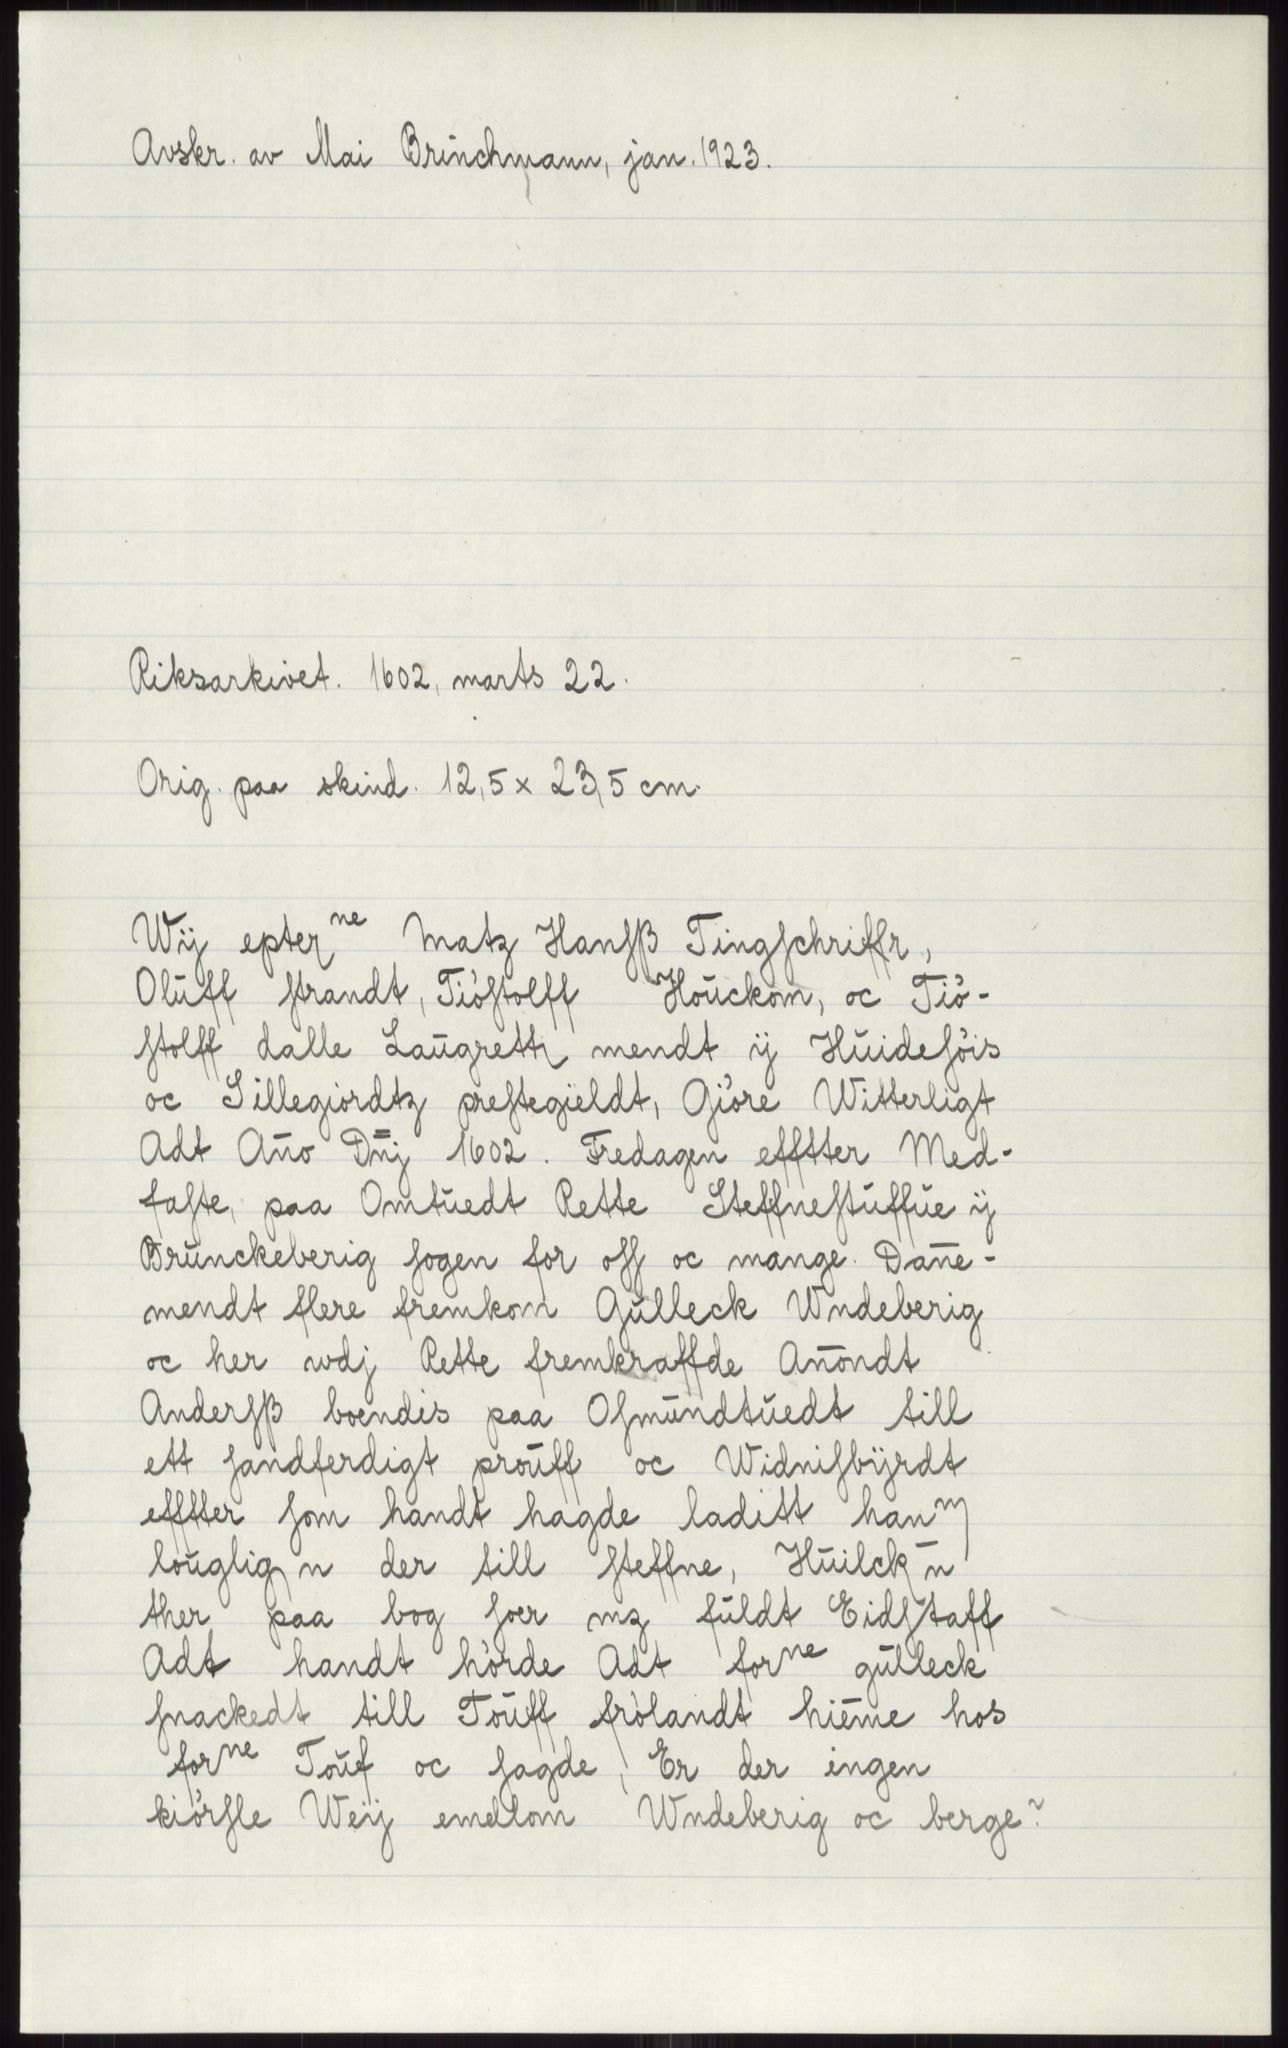 Avskr. av Mai Brinchmann, jan. 1923.
Riksarkivet. 1602, marts 22.
Orig. paa skind. 12,5 x 23,5 cm.
Wij epterⁿᵉ Matz Hanſẞ Tingſchriffr,
Oluff ſtrandt, Tiöſtolff Houckom, oc Tiö-
ſtolff dalle Laugrettz mendt ij Huideſöis
oc Sillegiordtz preſtegieldt, Giöre Witterligt
Adt Año Dn̄j 1602. Fredagen efftter Med-
faſte, paa Omtuedt Rette Steffneſtuffue ij
Brunckeberig ſogen for oſſ oc mange Dan̄e-
mendt flere fremkom Gulleck Wndeberig
oc her wdj Rette fremkraffde An̄ondt
Anderſẞ boendis paa Oſmundtuedt till
ett ſandferdigt prouff oc Widniſbyrdt
efftter ſom handt hagde laditt hanm
louglign der till ſteffne, Huilckn̄
ther paa bog ſoer mz fuldt Eidſtaff
Adt handt hörde Adt forⁿᵉ gulleck
ſnackedt till Touff frölandt hiem̄e hos
forⁿᵉ Touf oc ſagde, Er der ingen
kiörſle Weij emellom Wndeberig oc berge?